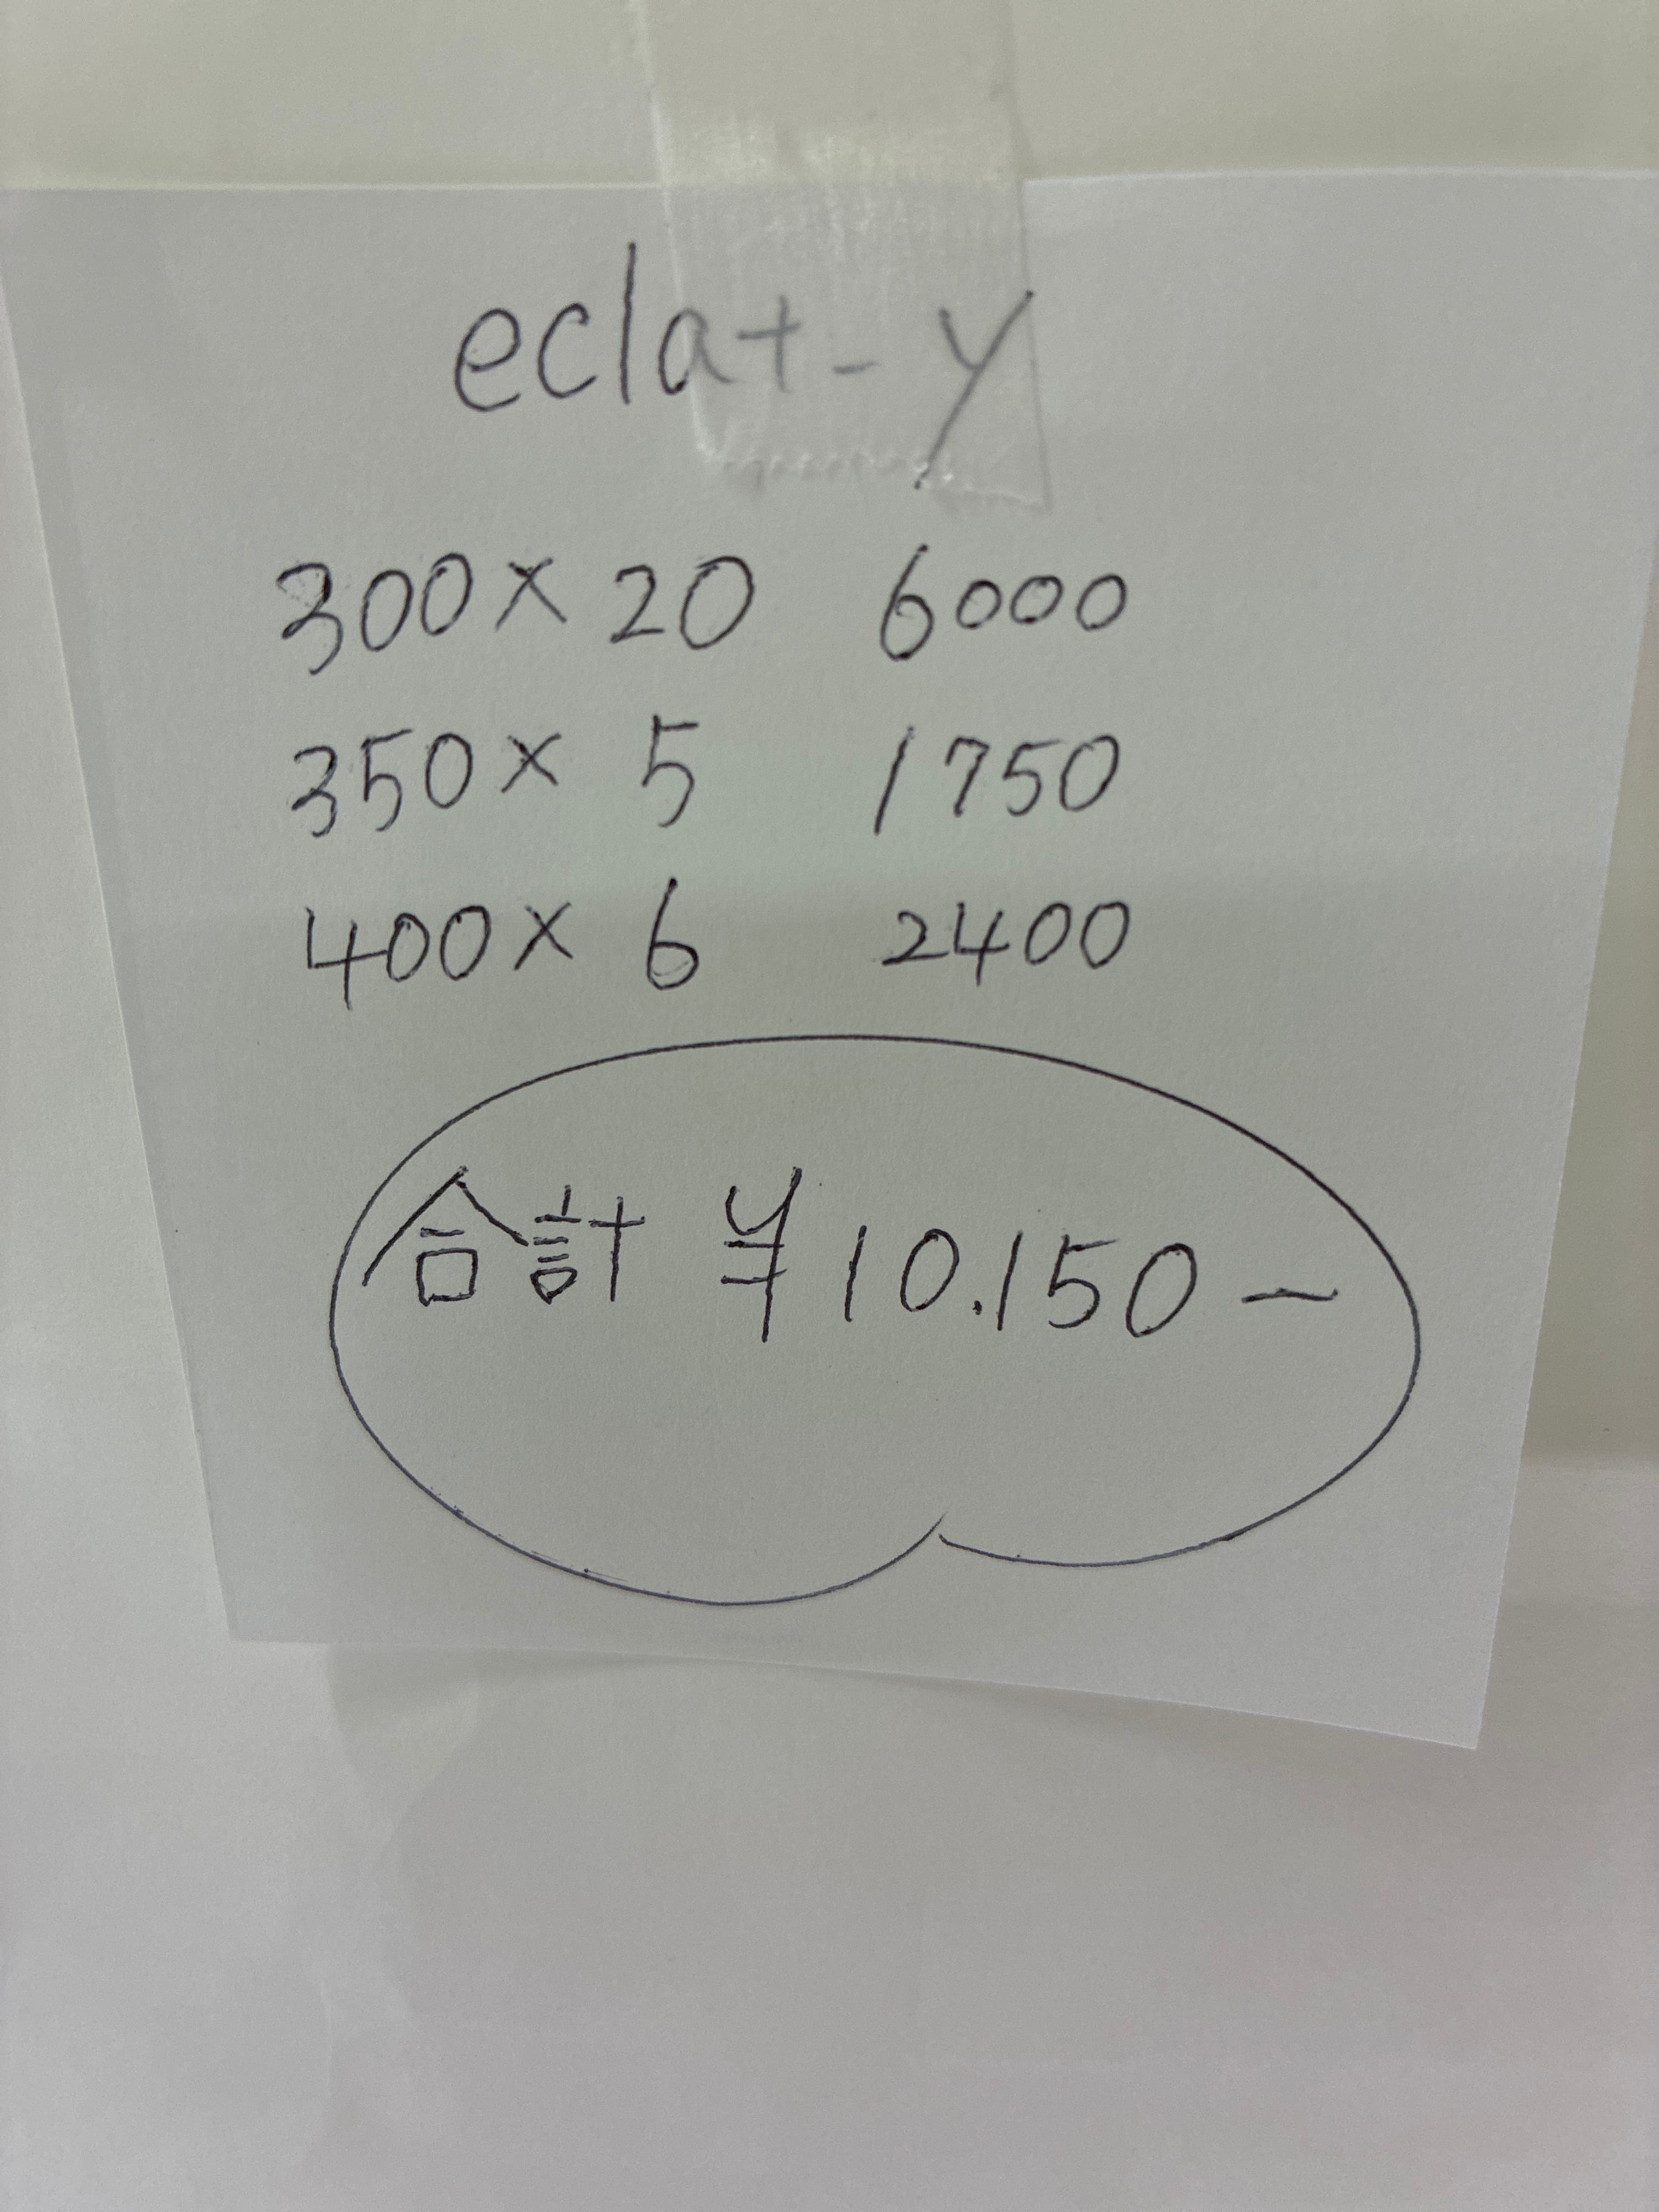 eclat-y
300× 20 6000
350× 5 1750
400× 6 2400
合計 ¥10.150-